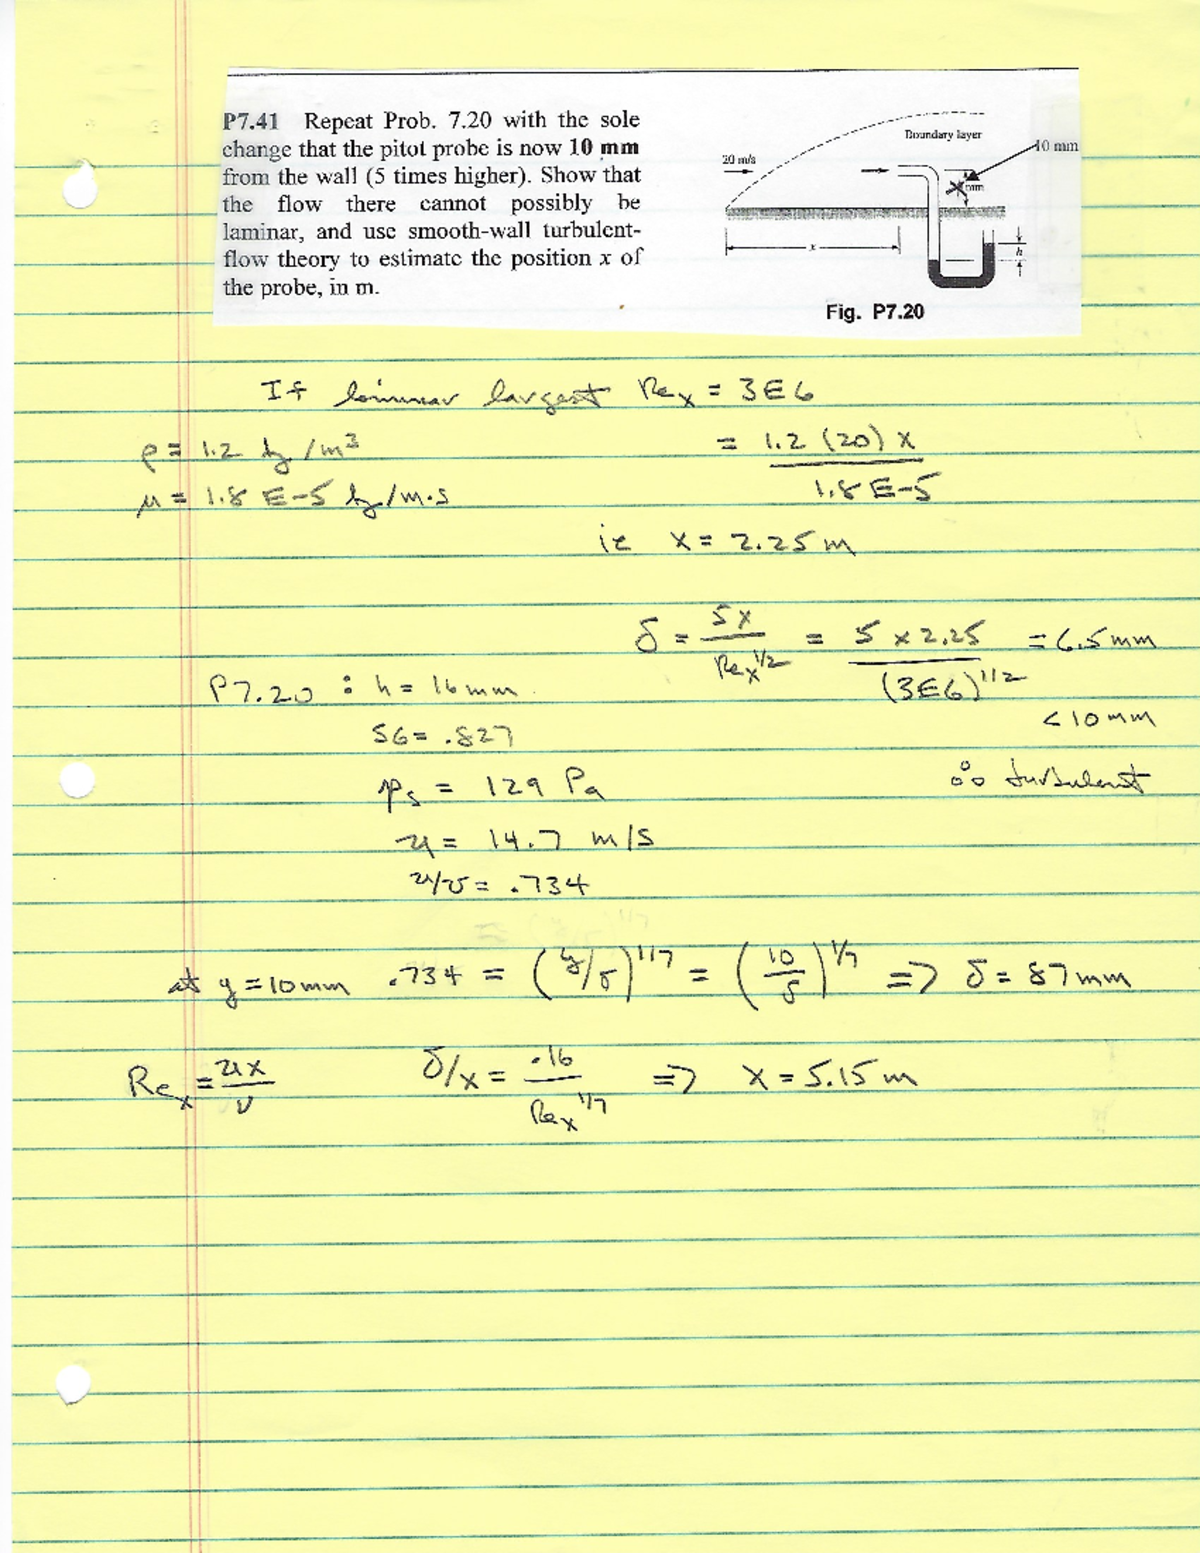 P7.41 Repeat Prob. 7.20 with the sole
change that the pitot probe is now 10 mm
from the wall (5 times higher). Show that
the flow there cannot possibly be
laminar, and use smooth-wall turbulent-
flow theory to estimate the position x of
the probe, in m.
Boundary layer
20 m/s
10 mm
mm
x
h
Fig. P7.20
If laminar largest Rex = 3E6
ρ = 1.2 kg/m³
= 1.2 (20) x
μ = 1.8 E-5 kg/m·s
1.8 E-5
ie x = 2.25 m
δ = 5x / Rex^1/2 = 5 x 2.25 / (3E6)^1/2 = 6.5 mm
P7.20 : h = 16 mm.
< 10 mm
SG = .827
∴ turbulent
ps = 129 Pa
u = 14.7 m/s
u/U = .734
at y = 10mm .734 = (y/δ)^1/7 = (10/δ)^1/7 => δ = 87 mm
Rex = ux/ν δ/x = .16/Rex^1/7 => x = 5.15 m